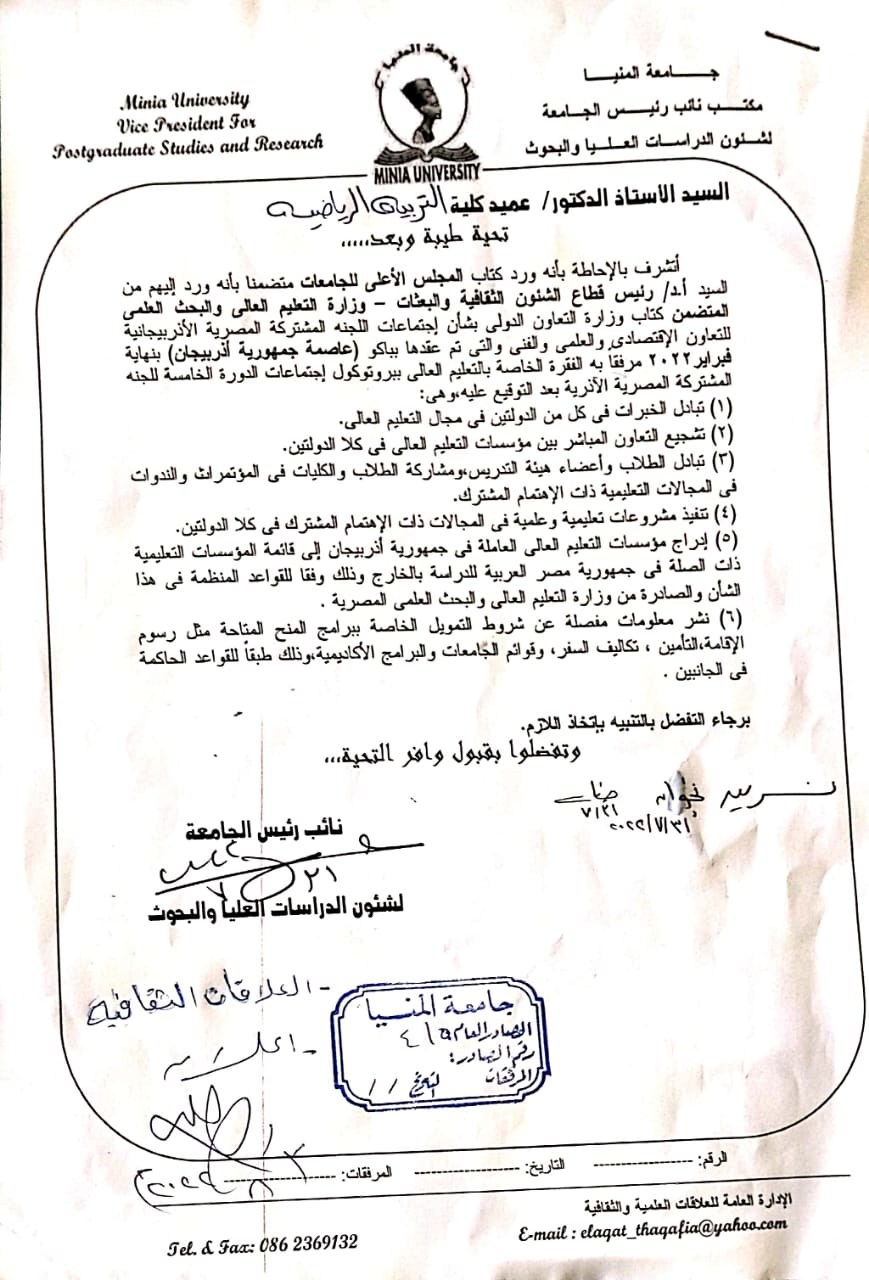 جامعة المنيا
مكتب نائب رئيس الجامعة
لشئون الدراسات العليا والبحوث
جامعة المنيا
MINIA UNIVERSITY
Minia University
Vice President For
Postgraduate Studies and Research
السيد الأستاذ الدكتور/ عميد كلية التربية الرياضية
تحية طيبة وبعد،،،،،
أتشرف بالإحاطة بأنه ورد كتاب المجلس الأعلى للجامعات متضمنا بأنه ورد إليهم من
السيد أ.د/ رئيس قطاع الشئون الثقافية والبعثات – وزارة التعليم العالى والبحث العلمى
المتضمن كتاب وزارة التعاون الدولى بشأن إجتماعات اللجنه المشتركة المصرية الأذربيجانية
للتعاون الإقتصادى والعلمى والفنى والتى تم عقدها بباكو (عاصمة جمهورية أذربيجان) بنهاية
فبراير٢٠٢٢ مرفقاً به الفقرة الخاصة بالتعليم العالى ببروتوكول إجتماعات الدورة الخامسة للجنه
المشتركة المصرية الآذرية بعد التوقيع عليه،وهى:
(١) تبادل الخبرات فى كل من الدولتين فى مجال التعليم العالى.
(٢) تشجيع التعاون المباشر بين مؤسسات التعليم العالى فى كلا الدولتين.
(٣) تبادل الطلاب وأعضاء هيئة التدريس،ومشاركة الطلاب والكليات فى المؤتمرات والندوات
فى المجالات التعليمية ذات الإهتمام المشترك.
(٤) تنفيذ مشروعات تعليمية وعلمية فى المجالات ذات الإهتمام المشترك فى كلا الدولتين.
(٥) إدراج مؤسسات التعليم العالى العاملة فى جمهورية أذربيجان إلى قائمة المؤسسات التعليمية
ذات الصلة فى جمهورية مصر العربية للدراسة بالخارج وذلك وفقا للقواعد المنظمة فى هذا
الشأن والصادرة من وزارة التعليم العالى والبحث العلمى المصرية .
(٦) نشر معلومات مفصلة عن شروط التمويل الخاصة ببرامج المنح المتاحة مثل رسوم
الإقامة،التأمين ، تكاليف السفر، وقوائم الجامعات والبرامج الأكاديمية،وذلك طبقاً للقواعد الحاكمة
فى الجانبين .
برجاء التفضل بالتنبيه بإتخاذ اللازم.
وتفضلوا بقبول وافر التحية،،،
٧/٣١
٢٠٢٢/٧/٣١
نائب رئيس الجامعة
٧/٢١
لشئون الدراسات العليا والبحوث
- العلاقات الثقافية
جامعة المنيا
الصادر العام
رقم الصادر:
المرفقات التاريخ / /
الرقم: ------------------ التاريخ: ------------------ المرفقات: ------------------
الإدارة العامة للعلاقات العلمية والثقافية
E-mail : elaqat_thaqafia@yahoo.com
Tel. & Fax: 086 2369132